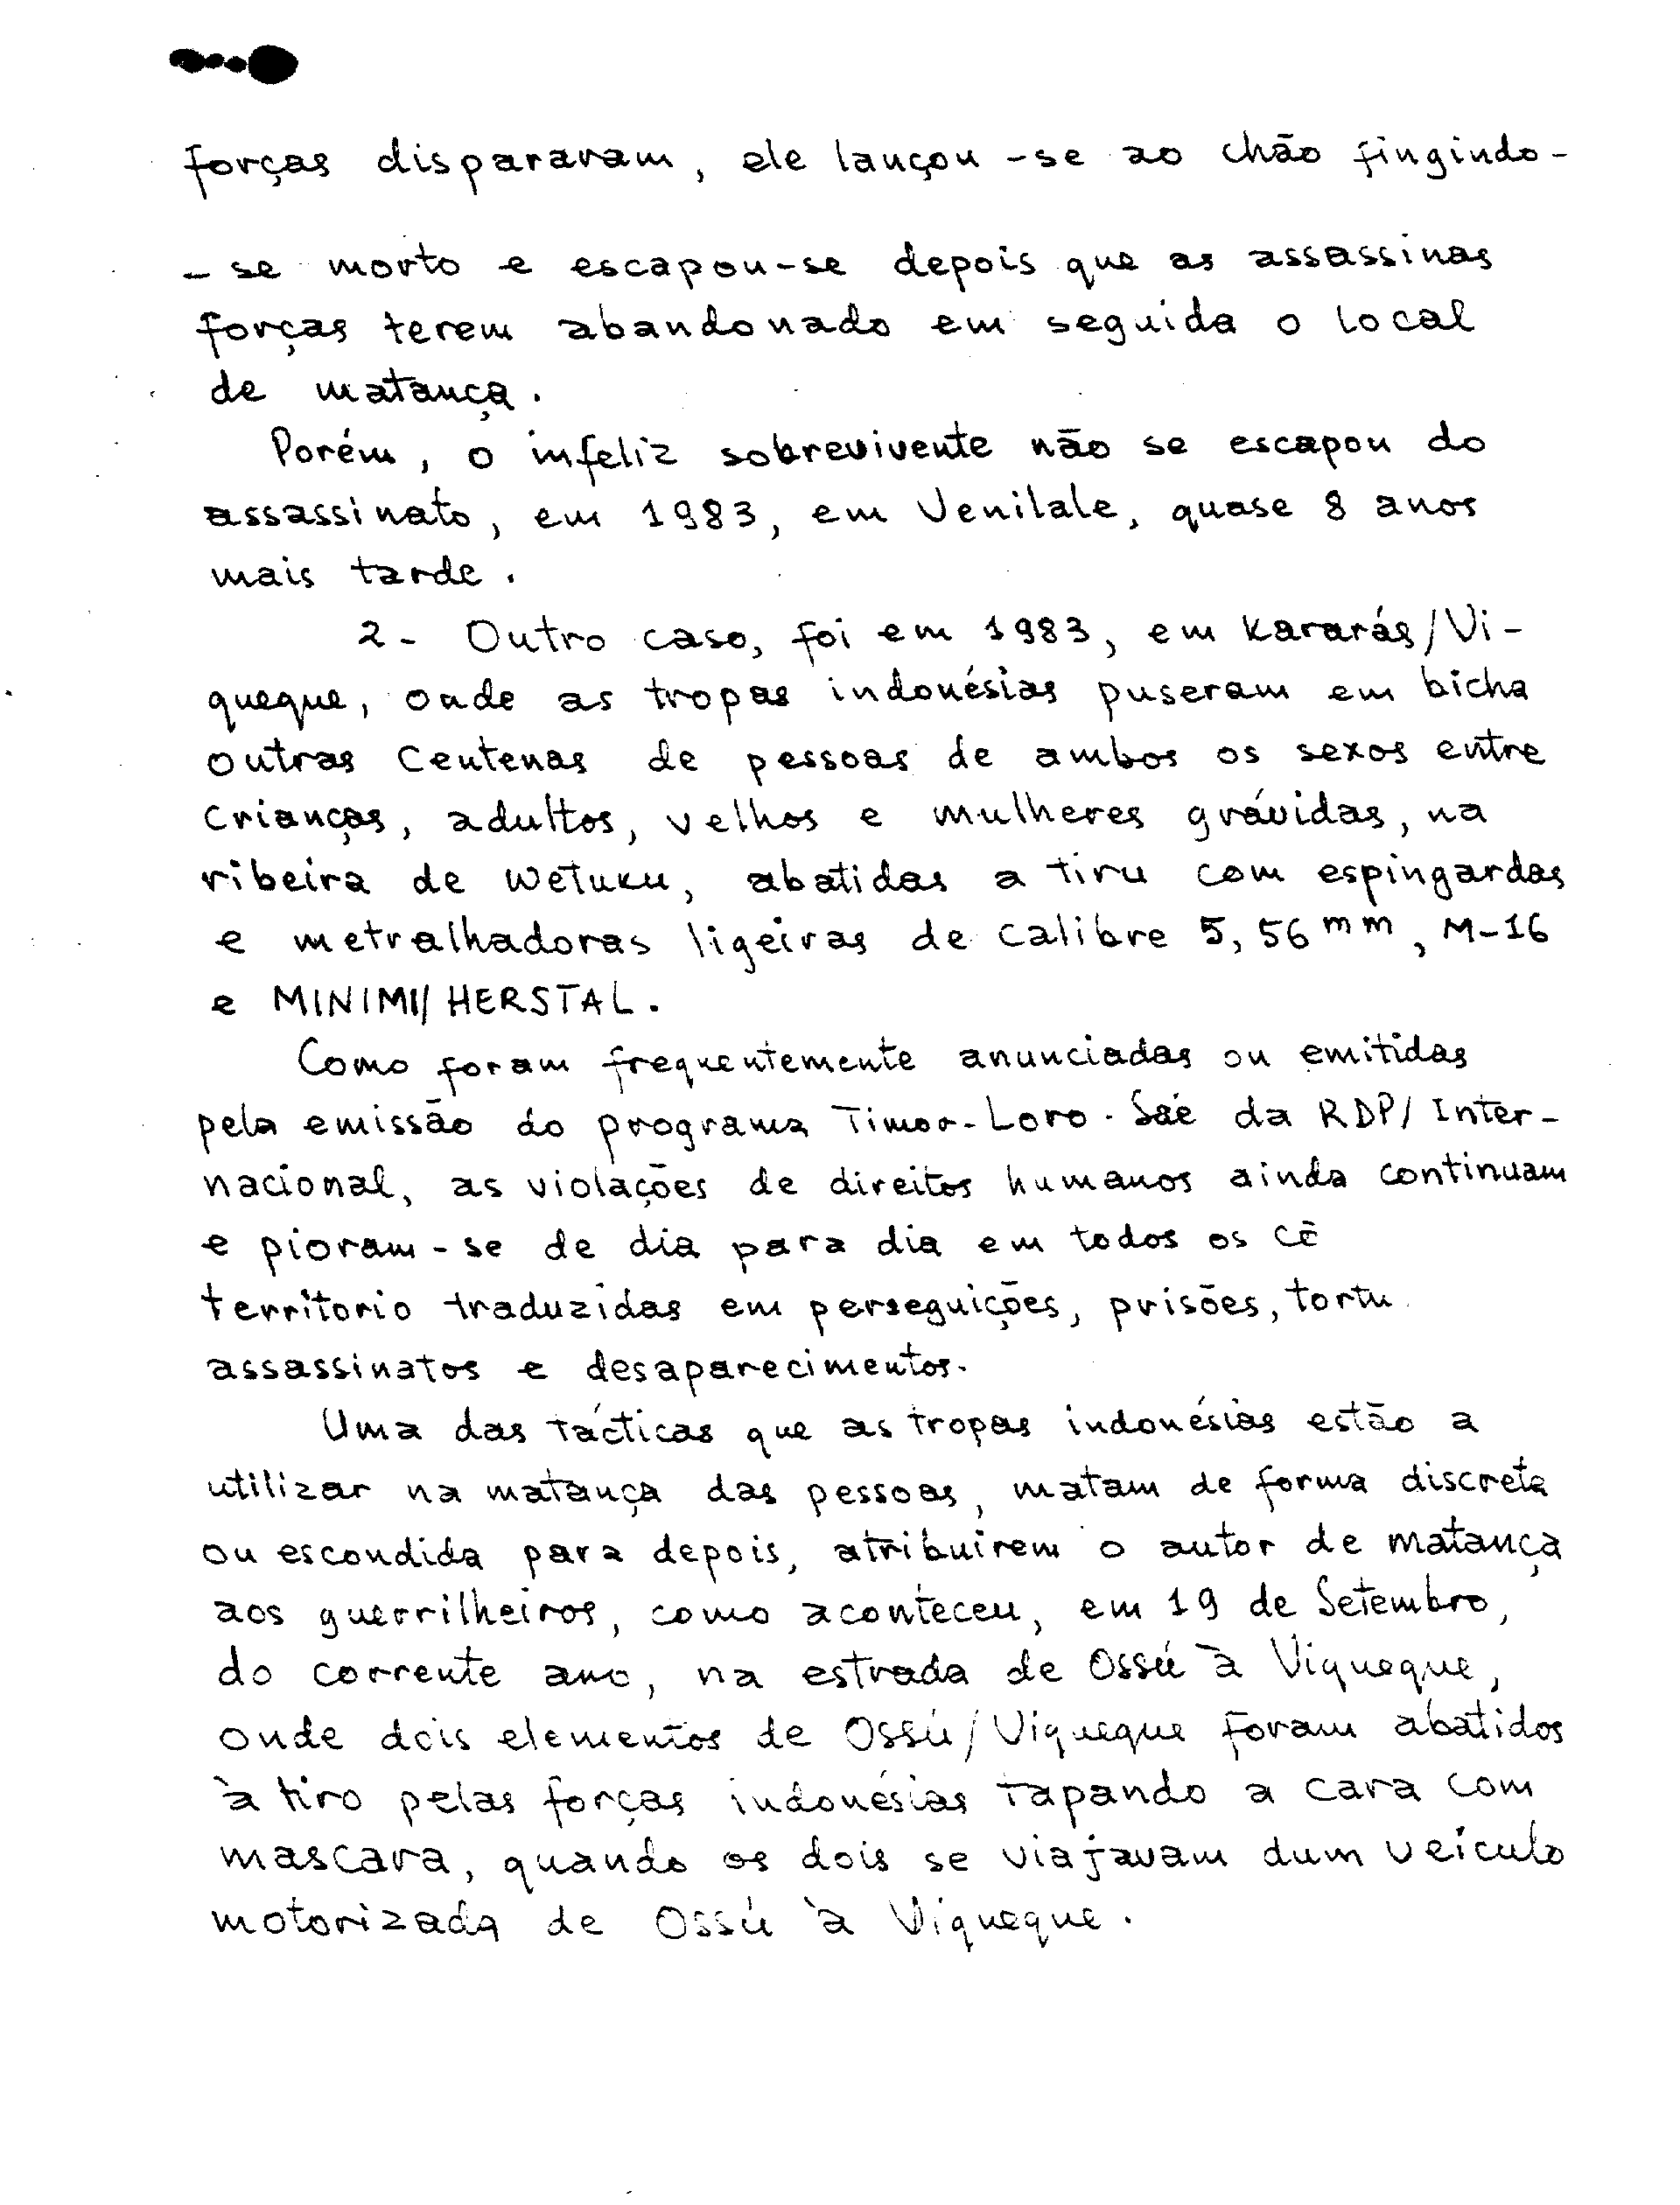 forças dispararam, ele lançou-se ao chão fingindo-
-se morto e escapou-se depois que as assassinas
forças terem abandonado em seguida o local
de matança.
Porém, o infeliz sobrevivente não se escapou do
assassinato, em 1983, em Venilale, quase 8 anos
mais tarde.
2- Outro caso, foi em 1983, em Kararás/Vi-
queque, onde as tropas indonésias puseram em bicha
outras centenas de pessoas de ambos os sexos entre
crianças, adultos, velhos e mulheres grávidas, na
ribeira de Wetuku, abatidas a tiru com espingardas
e metralhadoras ligeiras de calibre 5,56 mm, M-16
e MINIMI/HERSTAL.
Como foram frequentemente anunciadas ou emitidas
pela emissão do programa Timor-Loro-Saé da RDP/Inter-
nacional, as violações de direitos humanos ainda continuam
e pioram-se de dia para dia em todos os
territorio traduzidas em perseguições, prisões, tortu
assassinatos e desaparecimentos.
Uma das tácticas que as tropas indonésias estão a
utilizar na matança das pessoas, matam de forma discreta
ou escondida para depois, atribuirem o autor de matança
aos guerrilheiros, como aconteceu, em 19 de Setembro,
do corrente ano, na estrada de Ossú à Viqueque,
onde dois elementos de Ossú/Viqueque foram abatidos
à tiro pelas forças indonésias tapando a cara com
mascara, quando os dois se viajavam dum veículo
motorizada de Ossú à Viqueque.